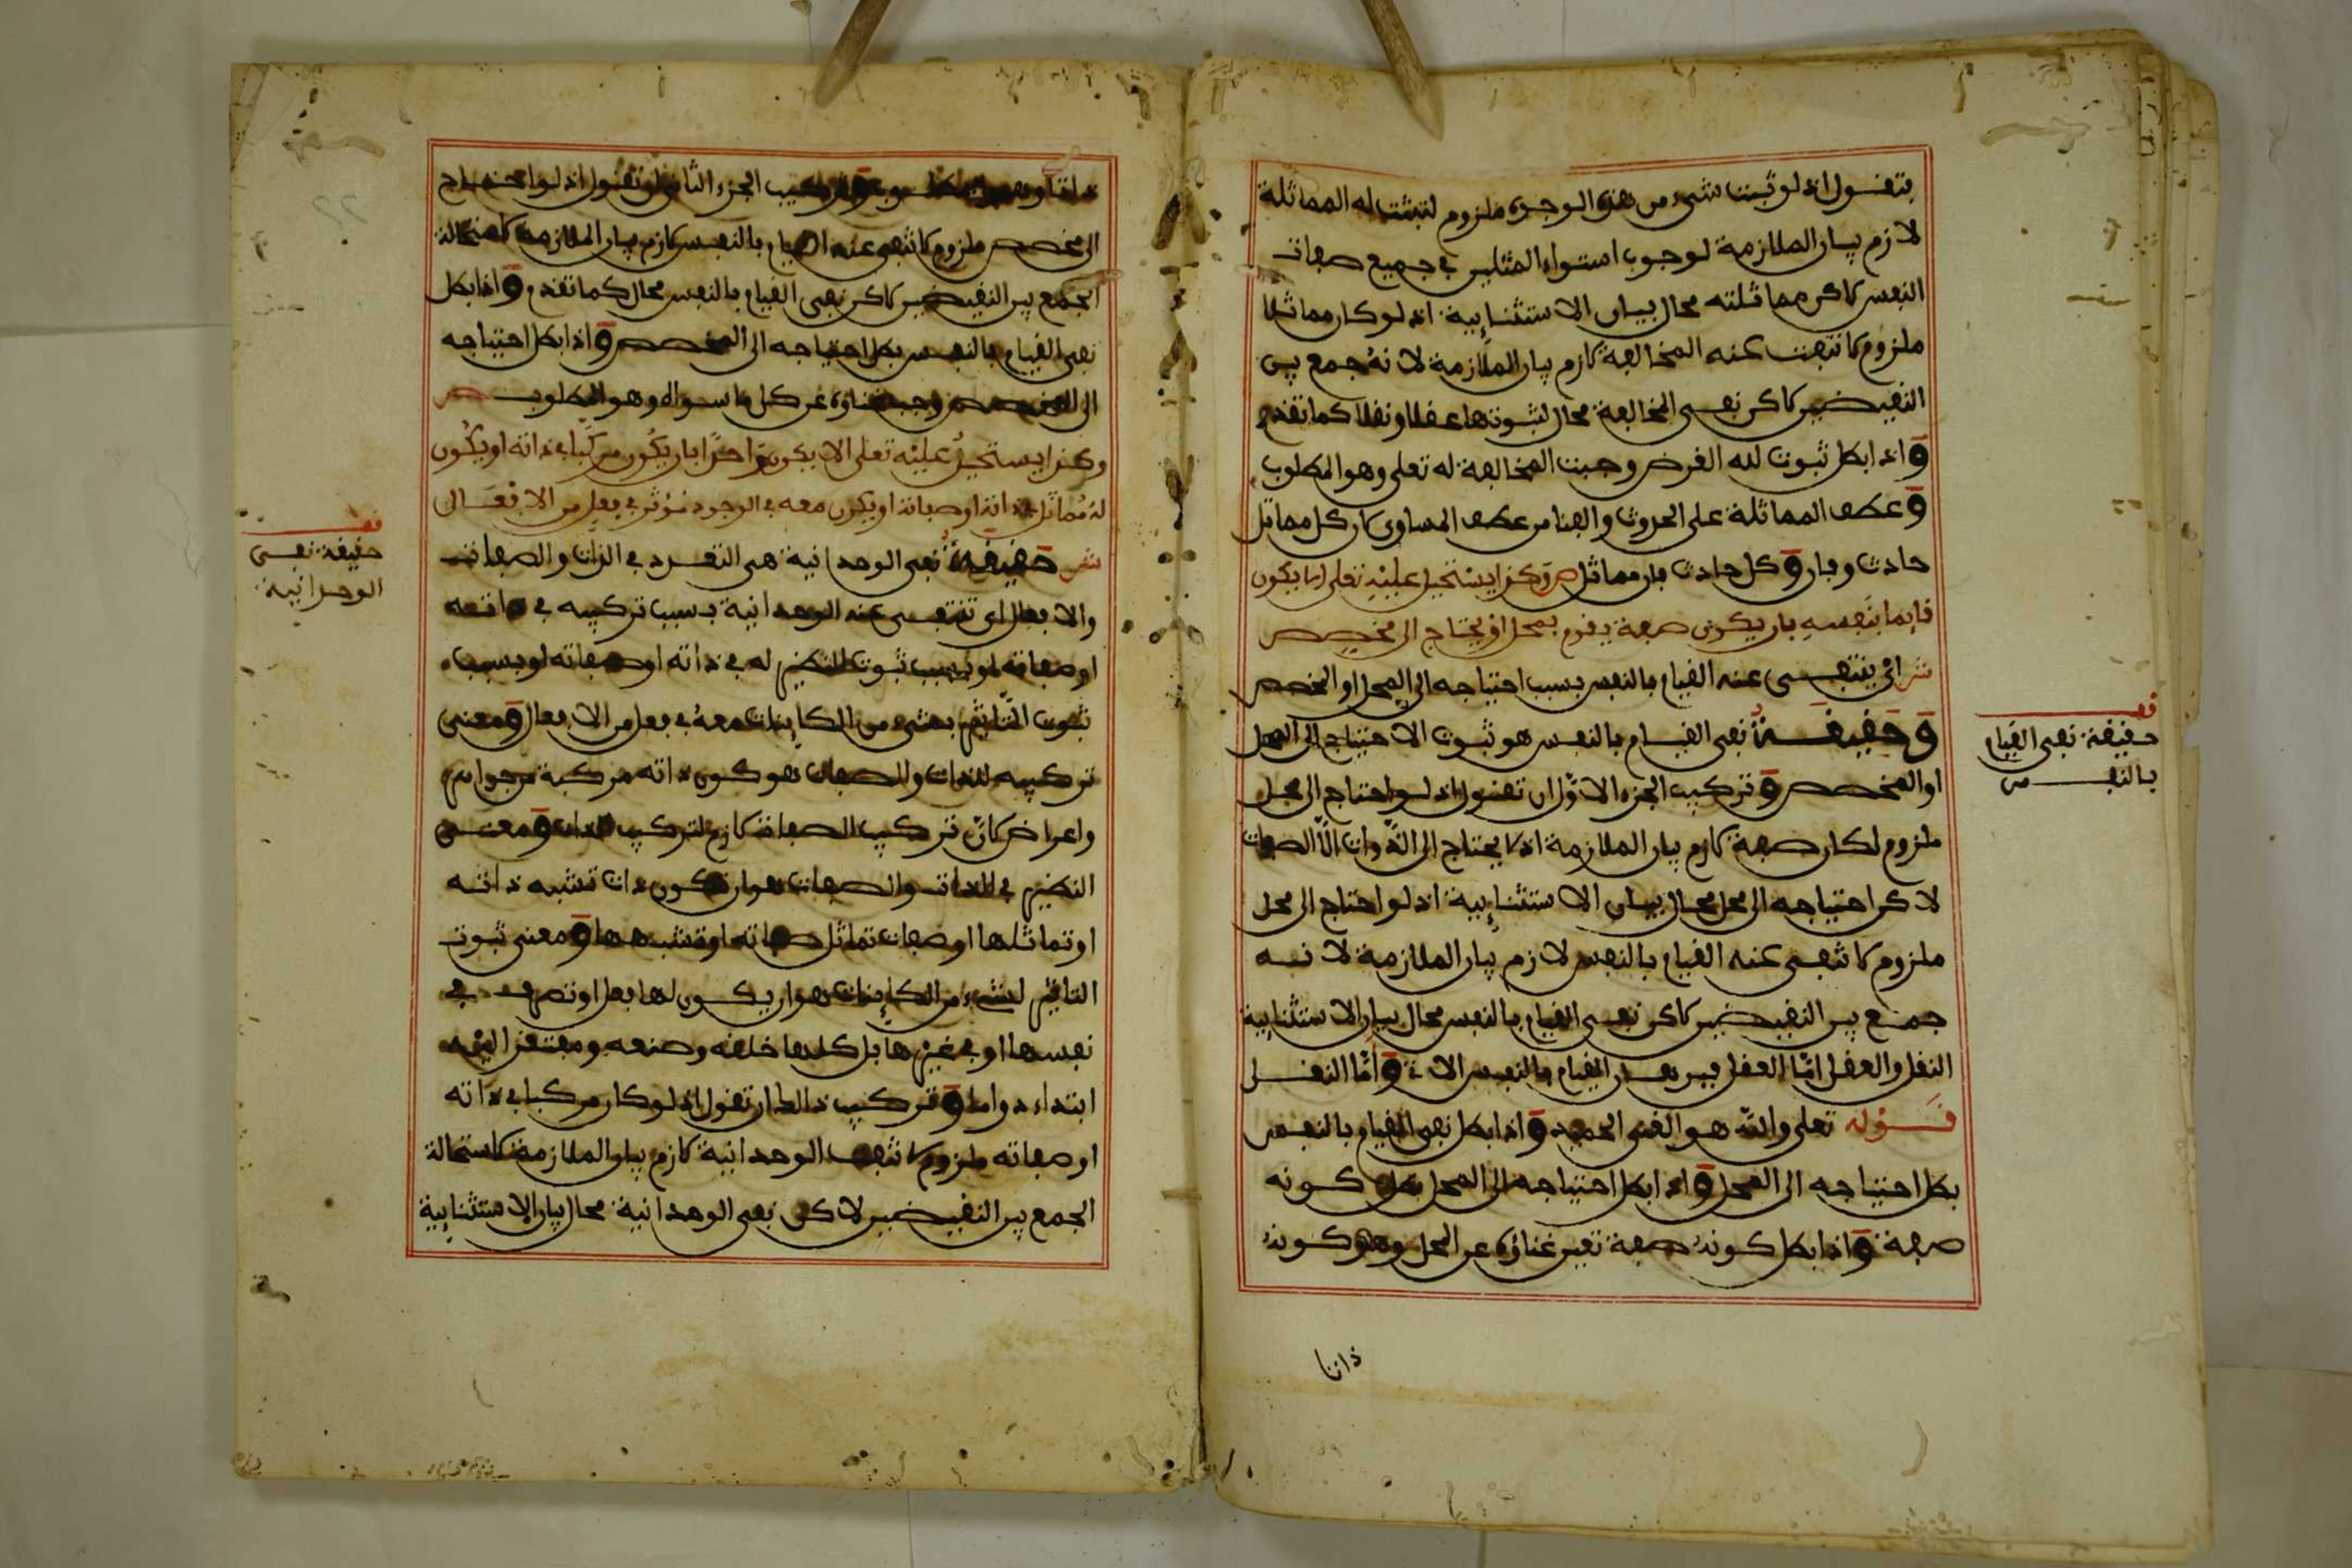 بتقول اذ لو ثبت شيء من هذه الوجوه ملزوم لثبتت له المماثلة
لازم بيان الملازمة لوجوب استواء المثلين في جميع صفات
النفس لاكن مماثلته محال بيان الاستثنايية اذ لو كان مماثلا
ملزوم لانتفت عنه المخالفة لازم بيان الملازمة لانه جمع بين
النقيضين لاكن نفي المخالفة محال لثبوتها عقلا ونقلا كما تقدم
و اذا بطل ثبوت لله الغرض وجبت المخالفة له تعلى وهو المطلوب
و عطف المماثلة على الحدوث والفنا من عطف المساوي لان كل مماثل
حادث وفان و كل حادث فان مماثل ص وكذا يستحيل عليه تعلى ان لا يكون
قايما بنفسه بان يكون صفة يقوم بمحل او يحتاج الى مخصص
ش اي ينتفي عنه القيام بالنفس بسبب احتياجه الى المحل او المخصص
و حقيقة نفي القيام بالنفس هو ثبوت الاحتياج الى المحل
او المخصص و تركيب الجزء الاول ان تقول اذ لو احتاج الى محل
ملزوم لكان صفة لازم بيان الملازمة اذ لا يحتاج الى الذوات الا الصفات
لاكن احتياجه الى محل محال بيان الاستثنايية اذ لو احتاج الى محل
ملزوم لانتفى عنه القيام بالنفس لازم بيان الملازمة لانه
جمع بين النقيضين لاكن نفي القيام بالنفس محال بيان الاستثنايية
النقل والعقل اما العقل فبرهان القيام بالنفس الات و اما النقل
قوله تعلى والله هو الغني الحميد و اذا بطل نفي القيام بالنفس
بطل احتياجه الى المحل و اذا بطل احتياجه الى المحل بطل كونه
صفة و اذا بطل كونه صفة تعين غناؤه عن المحل وهو كونه
ذاتا
حقيقة نفي القيام
بالنفس
وتركيب الجزء الثاني ان تقول اذ لو احتاج
الى مخصص ملزوم لانتفى عنه القيام بالنفس لازم بيان الملازمة لاستحالة
الجمع بين النقيضين لاكن نفي القيام بالنفس محال كما تقدم و اذا بطل
نفي القيام بالنفس بطل احتياجه الى المخصص و اذا بطل احتياجه
الى المخصص وجب غناؤه عن كل ما سواه وهو المطلوب ص
وكذا يستحيل عليه تعلى الا يكون واحدا بان يكون مركبا في ذاته او يكون
له مماثل في ذاته او صفاته او يكون معه في الوجود مؤثر في فعل من الافعال
ش حقيقة نفي الوحدانية هي التعدد في الذات والصفات
والافعال اي تنتفي عنه الوحدانية بسبب تركيبه في ذاته
او صفاته او بسبب ثبوت النظير له في ذاته او صفاته او بسبب
ثبوت التاثير بشيء من الكاينات معه في فعل من الافعال و معنى
تركيبه للذات والصفات هو كون ذاته مركبة من جواهر
واعراض لان تركيب الصفات لازم لتركيب الذات و معنى
النظير في الذات والصفات هو ان تكون ذات تشبه ذاته
او تماثلها او صفات تماثل صفاته او تشبهها و معنى ثبوت
التاثير لشيء من الكاينات هو ان يكون لها فعل او تصرف في
نفسها او في غيرها بل كلها خلقه وصنعه ومفتقر اليه
ابتداء دواما و تركيب ذالك ان تقول اذ لو كان مركبا في ذاته
او صفاته ملزوم لانتفت الوحدانية لازم بيان الملازمة لاستحالة
الجمع بين النقيضين لاكن نفي الوحدانية محال بيان الاستثنايية
حقيقة نفي
الوحدانية